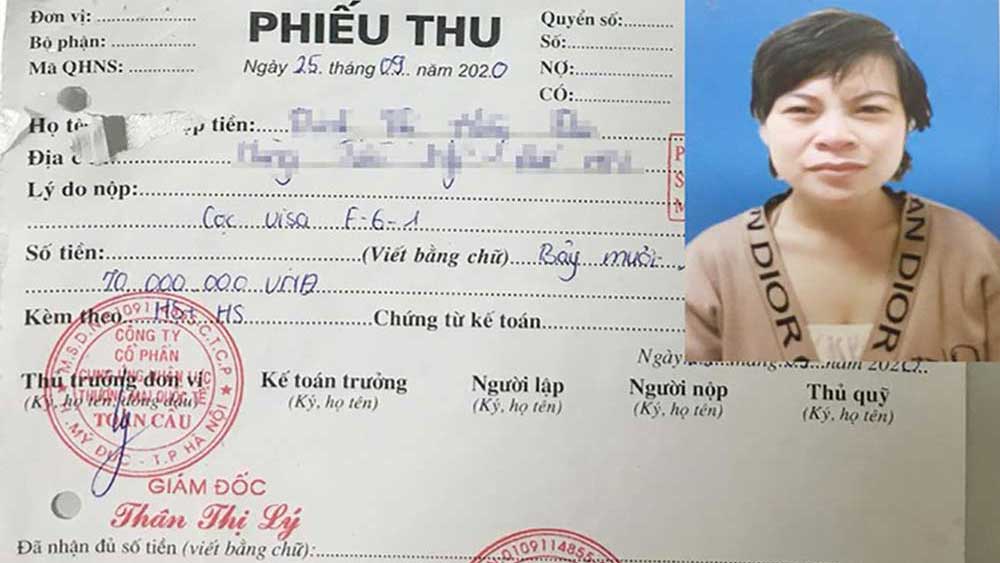 Đơn vị:
PHIẾU THU
Quyển số:
Bộ phận:
Số:
Mã QHNS:
Ngày 25 tháng 09 năm 2020
NỢ:
CÓ:
Họ tê p tiền:
Địa c
Lý do nộp:
Cọc visa F-6-1
Số tiền: (Viết bằng chữ) Bảy mươi
70.000.000 VNĐ
Kèm theo HS Chứng từ kế toán
Ngày tháng năm 2020
Thủ trưởng đơn vị
Kế toán trưởng
Người lập
Người nộp
Thủ quỹ
(Ký, họ tên, đóng dấu)
(Ký, họ tên)
(Ký, họ tên)
(Ký, họ tên)
(Ký, họ tên)
CÔNG TY
CỔ PHẦN
CUNG ỨNG NHÂN LỰC
THƯƠNG MẠI QUỐC TẾ
TOÀN CẦU
H. MỸ ĐỨC - T.P HÀ NỘI
GIÁM ĐỐC
Thân Thị Lý
Đã nhận đủ số tiền (viết bằng chữ):
0109114855
DIOR
DIOR